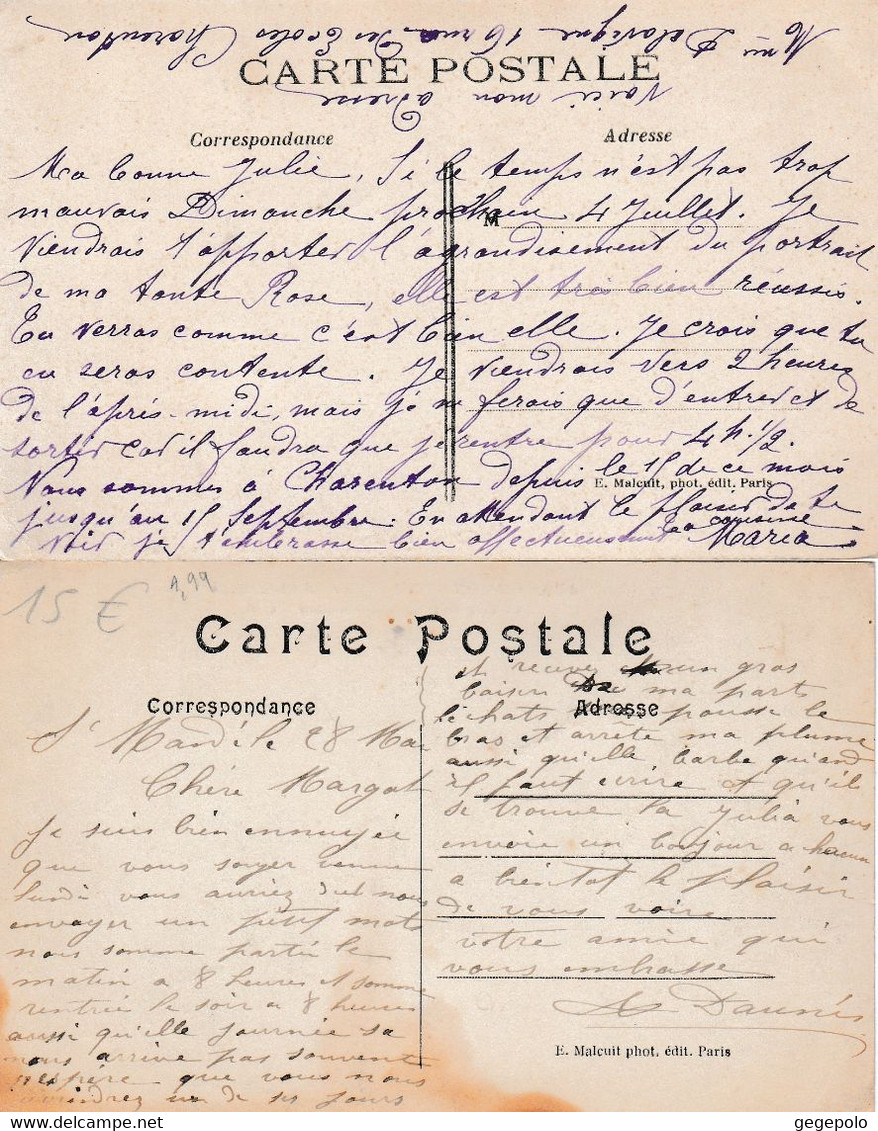 Mme Delavigne 16 rue des Ecoles Charenton
Voici mon adresse
CARTE POSTALE
Correspondance
Adresse
M
Ma bonne Julie, Si le temps n'est pas trop
mauvais Dimanche prochain 4 Juillet. Je
viendrais t'apporter l'agrandissement du portrait
de ma tante Rose, elle est très bien réussis.
Tu verras comme c'est bien elle. Je crois que tu
en seras contente. Je viendrais vers 2 heures
de l'après-midi, mais je ne ferais que d'entrer et de
sortir car il faudra que je rentre pour 4 h. 1/2.
Nous sommes à Charenton depuis le 15 de ce mois
E. Malcuit, phot. édit. Paris
jusqu'au 15 Septembre. En attendant le plaisir de te
voir je t'embrasse bien affectueusement ta cousine Maria
15 € 1,99
Carte Postale
Correspondance
Adresse
St Mandé le 28 Mai
Chère Margot
Je suis bien ennuyée
que vous soyer venue
lundi vous auriez dut nous
envoyer un petit mot
nous somme partie le
matin a 8 heures et somme
rentrée le soir a 8 heures
aussi qu'elle journée sa
nous arrive pas souvent
j'espère que vous nous
un de ses jours
et recevez un gros
baiser de ma part
le chats pousse le
bras et arrete ma plume
aussi qu'elle barbe quand
il faut ecrire et qu'il
se trouve la Julia vous
envoie un bonjour a chacun
a bientot le plaisir
de vous voire
votre amie qui
vous embrasse
Daunis
E. Malcuit phot. édit. Paris
gegepolo